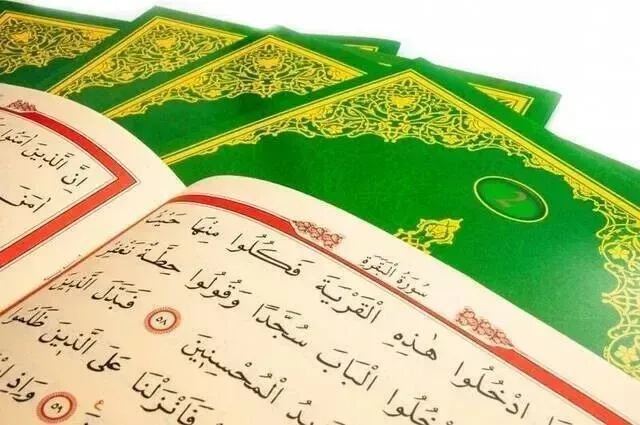 2
سُورَةُ الْبَقَرَةِ
ادْخُلُوا هٰذِهِ الْقَرْيَةَ فَكُلُوا مِنْهَا
خُلُوا الْبَابَ سُجَّدًا وَقُولُوا حِطَّةٌ نَغْفِرْ
يدُ الْمُحْسِنِينَ ٥٨ فَبَدَّلَ الَّذِينَ
فَاَنْزَلْنَا عَلَى الَّذِينَ ظَلَمُوا
٥٩ وَاِذِ
اِنَّ الَّذِينَ اٰمَنُوا
اٰمَنَ